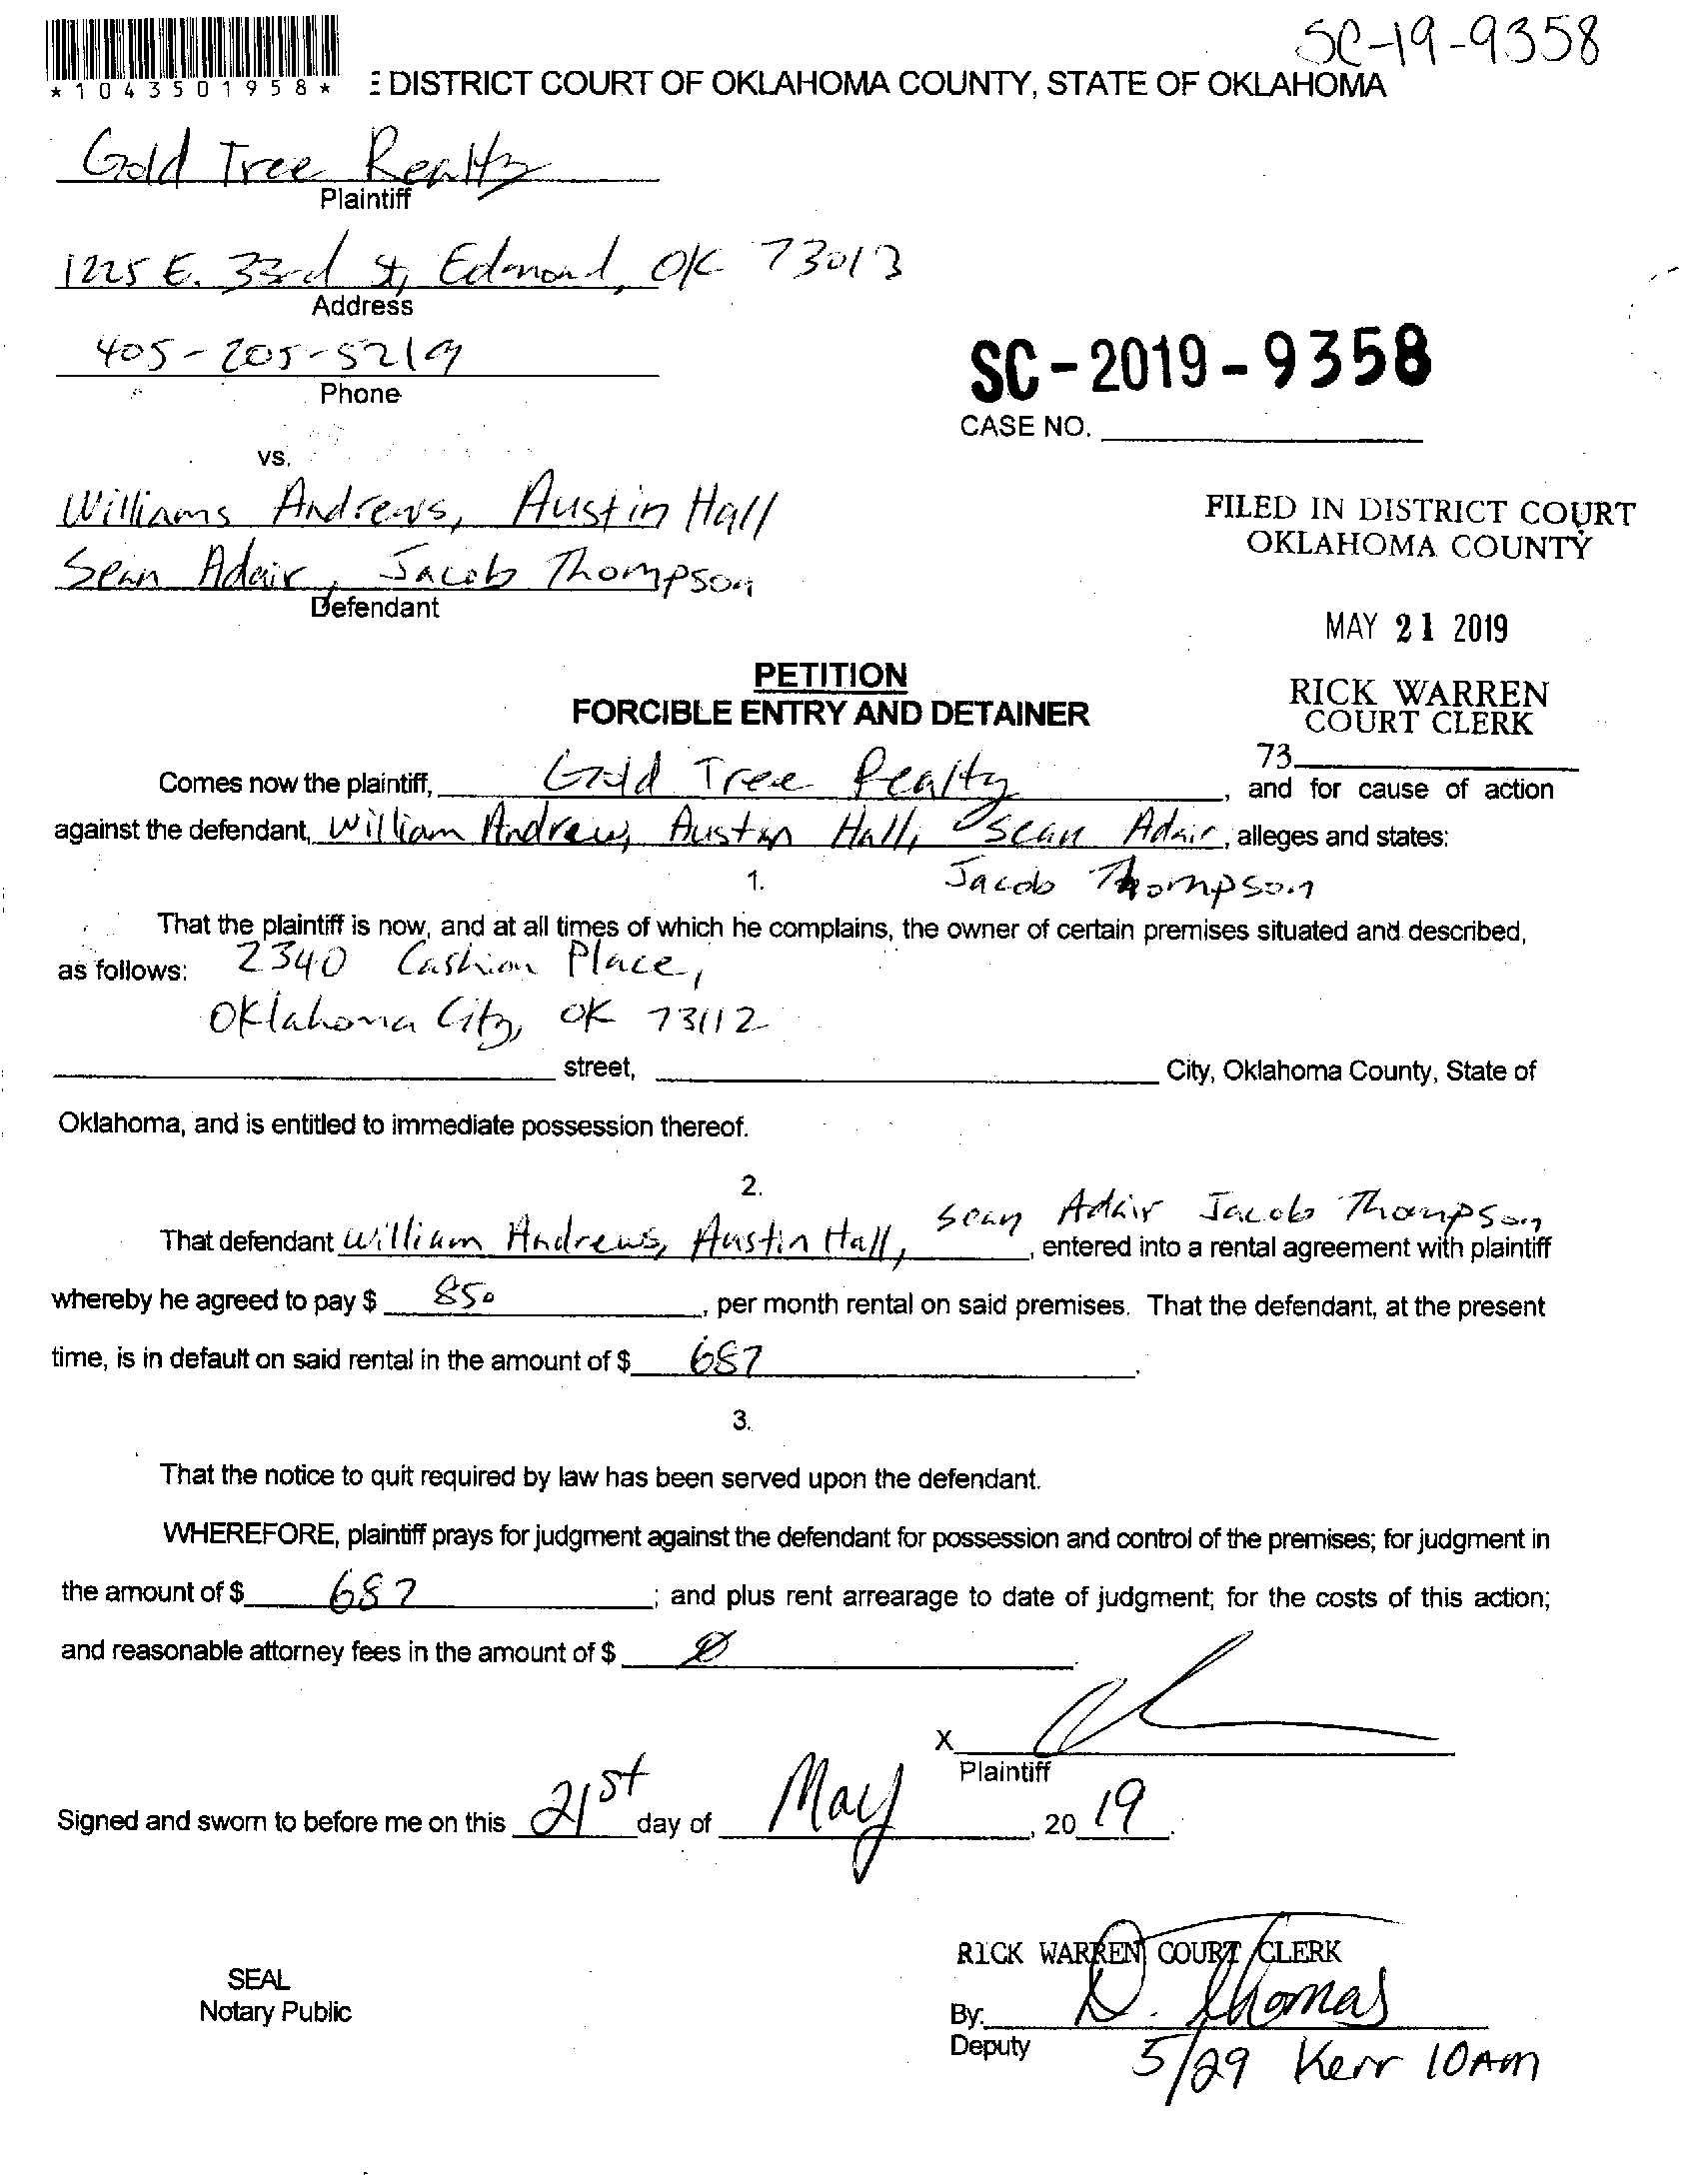 SC-19-9358
*1043501958*
E DISTRICT COURT OF OKLAHOMA COUNTY, STATE OF OKLAHOMA
Gold Tree Realty
Plaintiff
1225 E. 33rd St, Edmond, OK 73013
Address
405-205-5219
Phone
SC-2019-9358
CASE NO.
vs.
Williams Andrews, Austin Hall
Sean Adair, Jacob Thompson
Defendant
FILED IN DISTRICT COURT
OKLAHOMA COUNTY
MAY 21 2019
RICK WARREN
COURT CLERK
73
PETITION
FORCIBLE ENTRY AND DETAINER
Comes now the plaintiff, Gold Tree Realty, and for cause of action
against the defendant, William Andrews, Austin Hall, Sean Adair, alleges and states:
Jacob Thompson
1.
That the plaintiff is now, and at all times of which he complains, the owner of certain premises situated and described,
as follows: 2340 Cashion Place,
Oklahoma City, OK 73112
street, City, Oklahoma County, State of
Oklahoma, and is entitled to immediate possession thereof.
2.
That defendant William Andrews, Austin Hall, Sean Adair Jacob Thompson, entered into a rental agreement with plaintiff
whereby he agreed to pay $ 850, per month rental on said premises. That the defendant, at the present
time, is in default on said rental in the amount of $ 687.
3.
That the notice to quit required by law has been served upon the defendant.
WHEREFORE, plaintiff prays for judgment against the defendant for possession and control of the premises; for judgment in
the amount of $ 687; and plus rent arrearage to date of judgment; for the costs of this action;
and reasonable attorney fees in the amount of $ Ø.
X
Plaintiff
Signed and sworn to before me on this 21st day of May, 2019.
RICK WARREN COURT CLERK
SEAL
Notary Public
By: D. Thomas
Deputy
5/29 Kerr 10AM